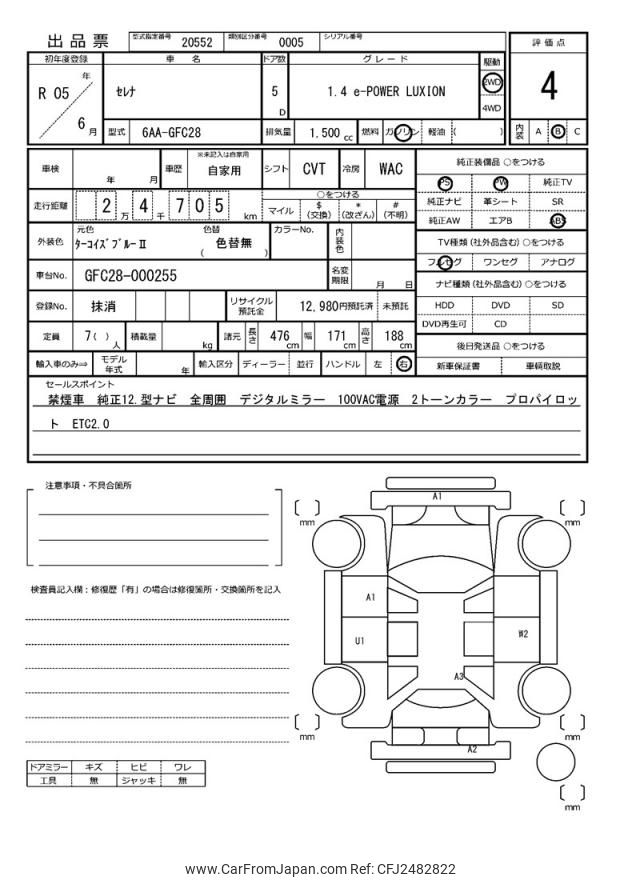 出品票
型式指定番号 20552 類別区分番号 0005 シリアル番号
評価点
4
初年度登録 車名 ドア数 グレード 駆動
R 05 年 6 月
セレナ
5 D
1.4 e-POWER LUXION
2WD
4WD
型式 6AA-GFC28 排気量 1.500 cc 燃料 ガソリン 軽油 ( )
内装 A B C
車検 年 月 車歴 ※未記入は自家用 自家用 シフト CVT 冷房 WAC
純正装備品 ○をつける
PS PW 純正TV
純正ナビ 革シート SR
純正AW エアB ABS
走行距離 2 万 4 千 7 0 5 km
○をつける
マイル $(交換) *(改ざん) #(不明)
TV種類 (社外品含む) ○をつける
フルセグ ワンセグ アナログ
外装色 元色 ターコイズブルーⅡ 色替 ( 色替無 ) カラーNo. 内装色
ナビ種類 (社外品含む) ○をつける
HDD DVD SD
DVD再生可 CD
車台No. GFC28-000255 名変期限 月 日
登録No. 抹消 リサイクル預託金 12,980円預託済 未預託
定員 7( ) 人 積載量 kg 諸元 長さ 476 cm 幅 171 cm 高さ 188 cm
後日発送品 ○をつける
新車保証書 車輌取説
輸入車のみ⇒ モデル年式 年 輸入区分 ディーラー 並行 ハンドル 左 右
セールスポイント
禁煙車 純正12.型ナビ 全周囲 デジタルミラー 100VAC電源 2トーンカラー プロパイロッ
ト ETC2.0
注意事項・不具合箇所
検査員記入欄：修復歴「有」の場合は修復箇所・交換箇所を記入
A1
mm mm
A1
U1
W2
A3
mm mm
A2
mm
ドアミラー キズ ヒビ ワレ
工具 無 ジャッキ 無
www.CarFromJapan.com Ref: CFJ2482822